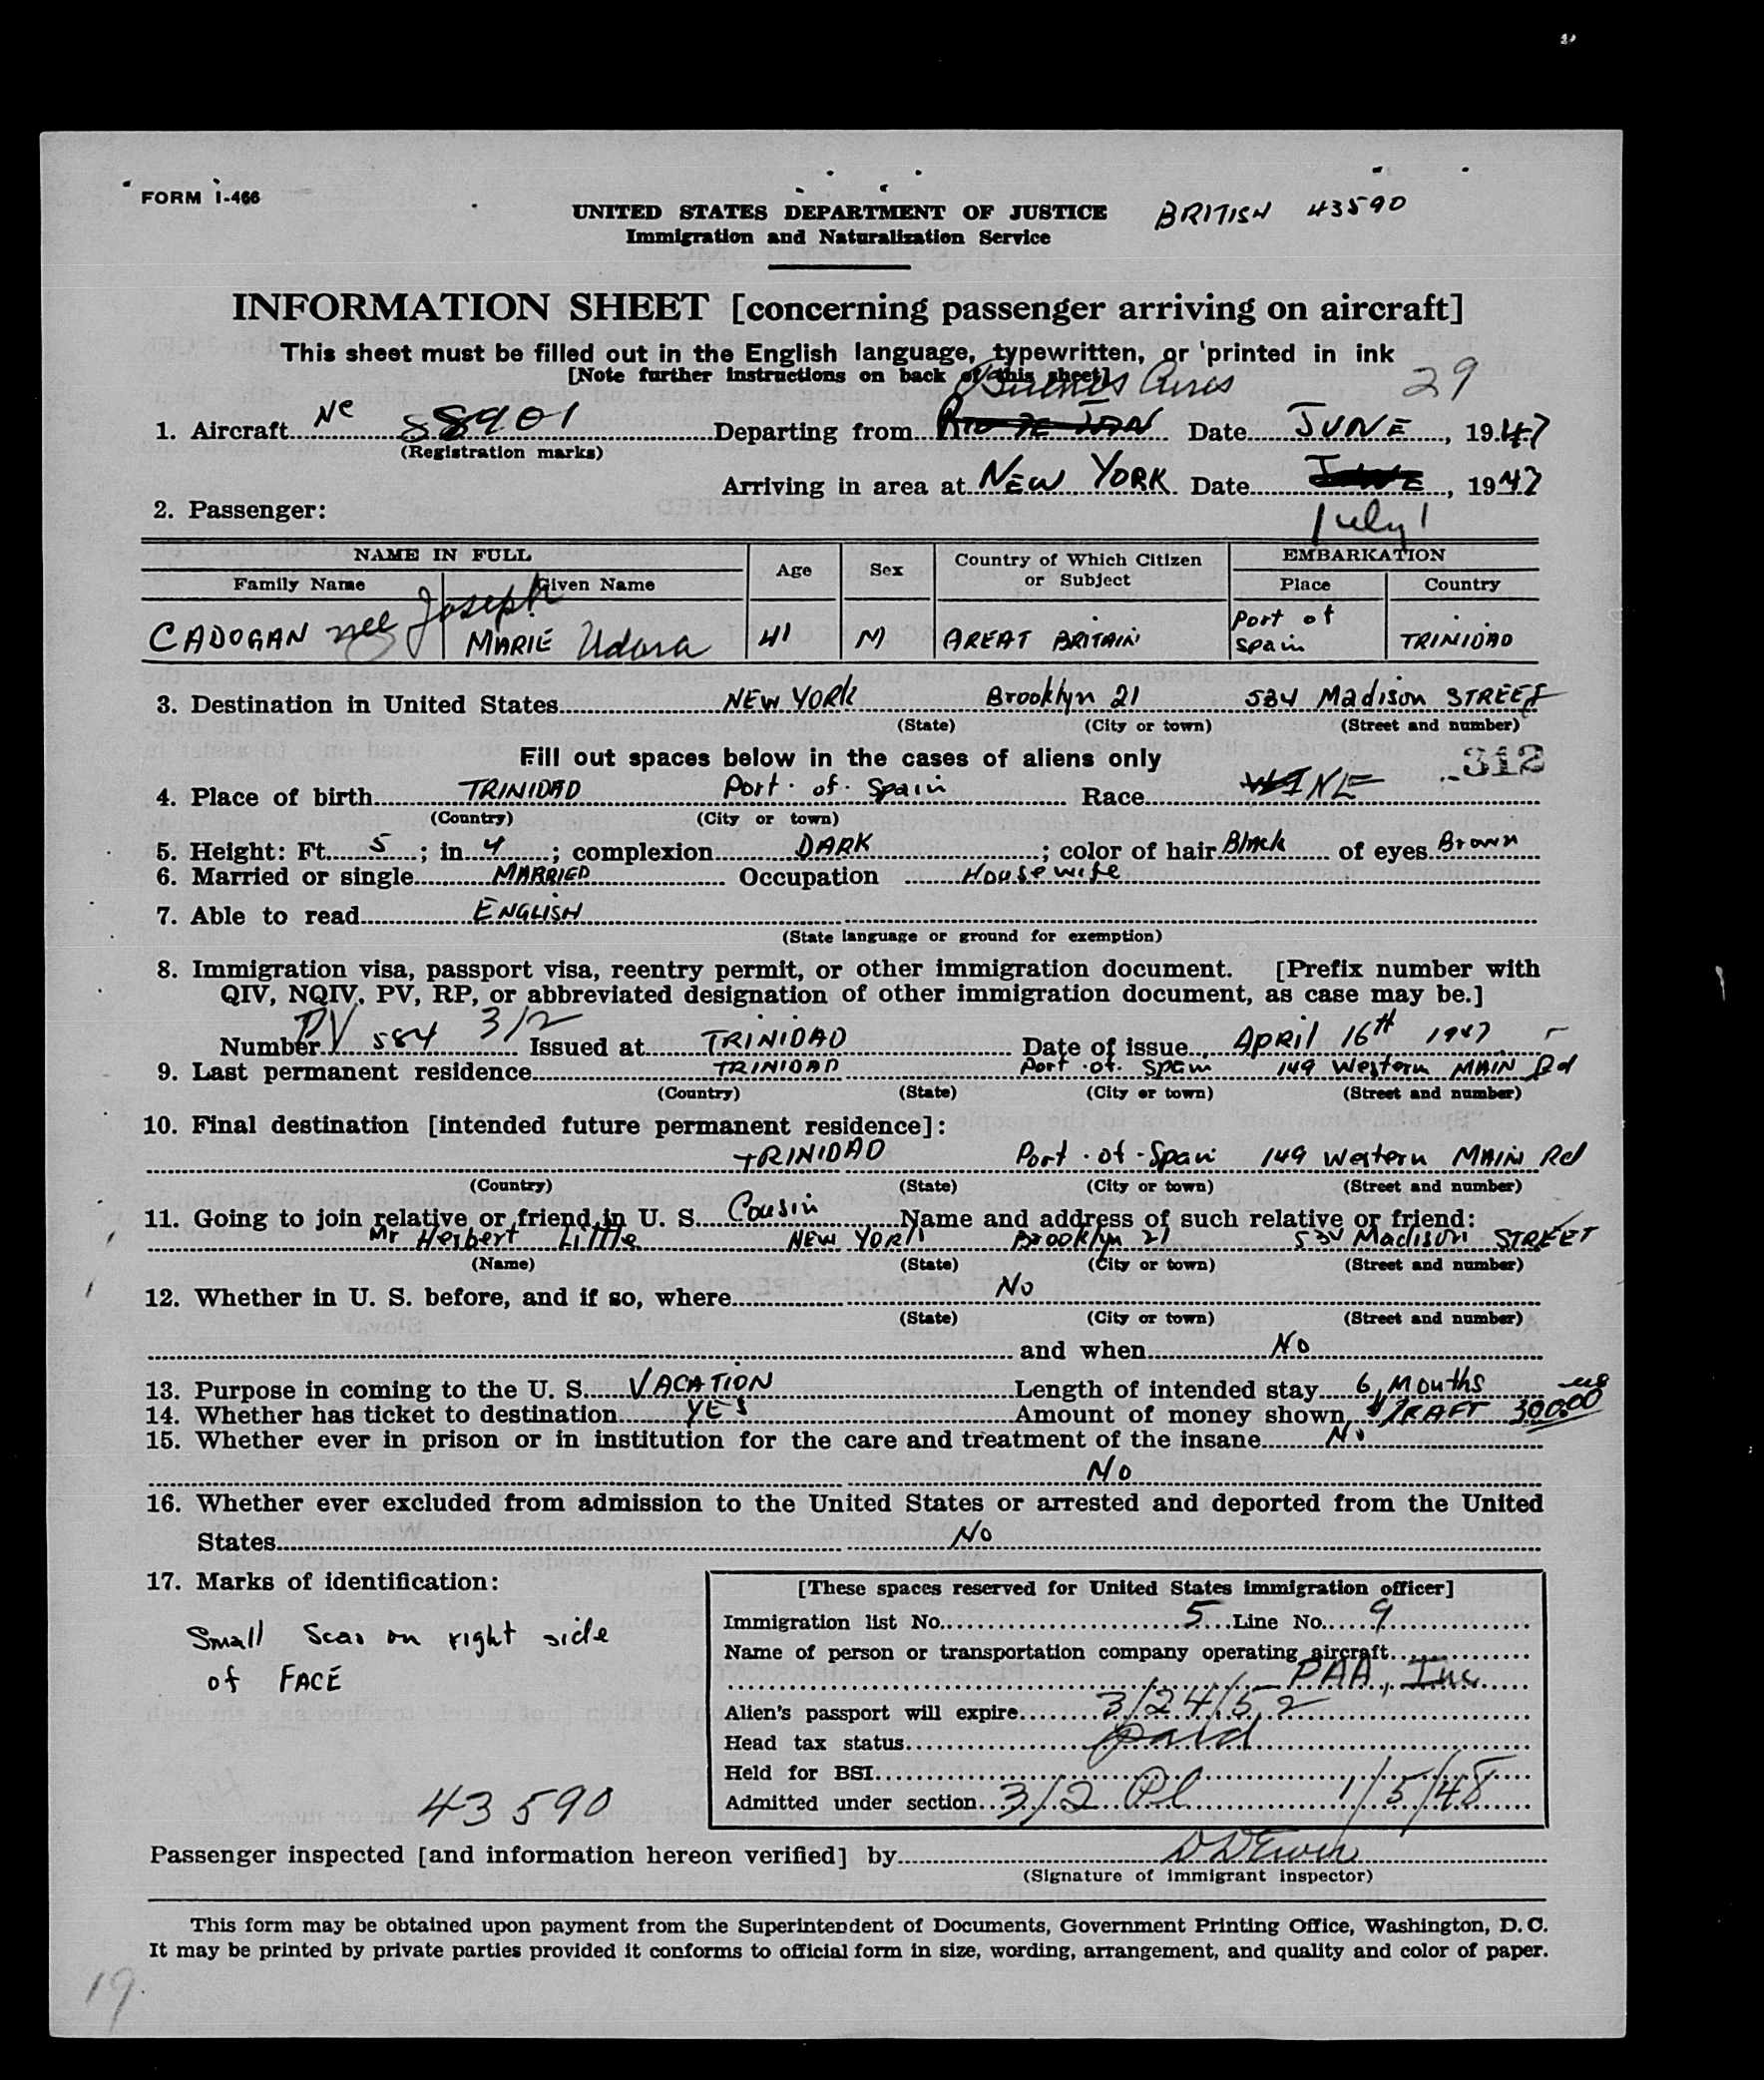 FORM I-466
UNITED STATES DEPARTMENT OF JUSTICE BRITISH 43590
Immigration and Naturalization Service
INFORMATION SHEET [concerning passenger arriving on aircraft]
This sheet must be filled out in the English language, typewritten, or printed in ink
[Note further instructions on back of this sheet]
Buenos Aires 29
1. Aircraft Nc 88901 Departing from Date JUNE, 1947
(Registration marks)
Arriving in area at NEW YORK Date JUNE, 1947
July 1
2. Passenger:
NAME IN FULL Age Sex Country of Which Citizen or Subject EMBARKATION
Family Name Given Name Place Country
CADOGAN nee Joseph MARIE Udora 41 M GREAT BRITAIN Port of Spain TRINIDAD
3. Destination in United States NEW YORK Brooklyn 21 534 Madison STREET
(State) (City or town) (Street and number)
Fill out spaces below in the cases of aliens only 312
4. Place of birth TRINIDAD Port of Spain Race
(Country) (City or town)
5. Height: Ft. 5; in. 4; complexion DARK; color of hair Black of eyes Brown
6. Married or single MARRIED Occupation Housewife
7. Able to read ENGLISH
(State language or ground for exemption)
8. Immigration visa, passport visa, reentry permit, or other immigration document. [Prefix number with
QIV, NQIV, PV, RP, or abbreviated designation of other immigration document, as case may be.]
Number PV 584 3/2 Issued at TRINIDAD Date of issue April 16th 1947
9. Last permanent residence TRINIDAD Port of Spain 149 Western MAIN Rd
(Country) (State) (City or town) (Street and number)
10. Final destination [intended future permanent residence]:
TRINIDAD Port of Spain 149 Western MAIN Rd
(Country) (State) (City or town) (Street and number)
11. Going to join relative or friend in U. S. Cousin Name and address of such relative or friend:
Mr Herbert Little NEW YORK Brooklyn 21 534 Madison STREET
(Name) (State) (City or town) (Street and number)
12. Whether in U. S. before, and if so, where No
(State) (City or town) (Street and number)
and when No
13. Purpose in coming to the U. S. VACATION Length of intended stay 6 Months
14. Whether has ticket to destination YES Amount of money shown DRAFT 300.00
15. Whether ever in prison or in institution for the care and treatment of the insane No
No
16. Whether ever excluded from admission to the United States or arrested and deported from the United
States No
17. Marks of identification:
Small Scar on right side
of FACE
43590
[These spaces reserved for United States immigration officer]
Immigration list No. 5 Line No. 9
Name of person or transportation company operating aircraft
PAA, Inc
Alien's passport will expire 3/24/52
Head tax status paid
Held for BSI
Admitted under section 3/2 Pl 1/5/48
Passenger inspected [and information hereon verified] by
(Signature of immigrant inspector)
This form may be obtained upon payment from the Superintendent of Documents, Government Printing Office, Washington, D. C.
It may be printed by private parties provided it conforms to official form in size, wording, arrangement, and quality and color of paper.
19